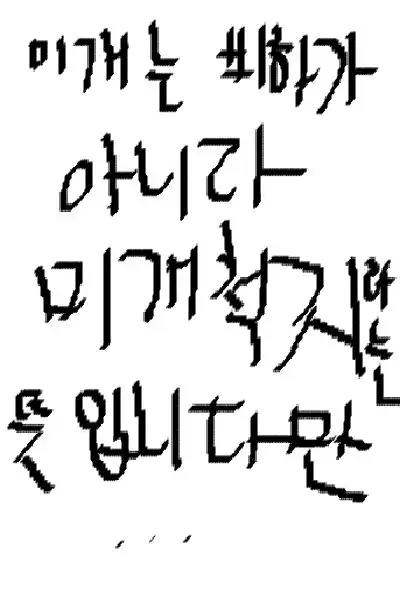 미개는 비하가
아니라
미개척지라는
뜻입니다만
...